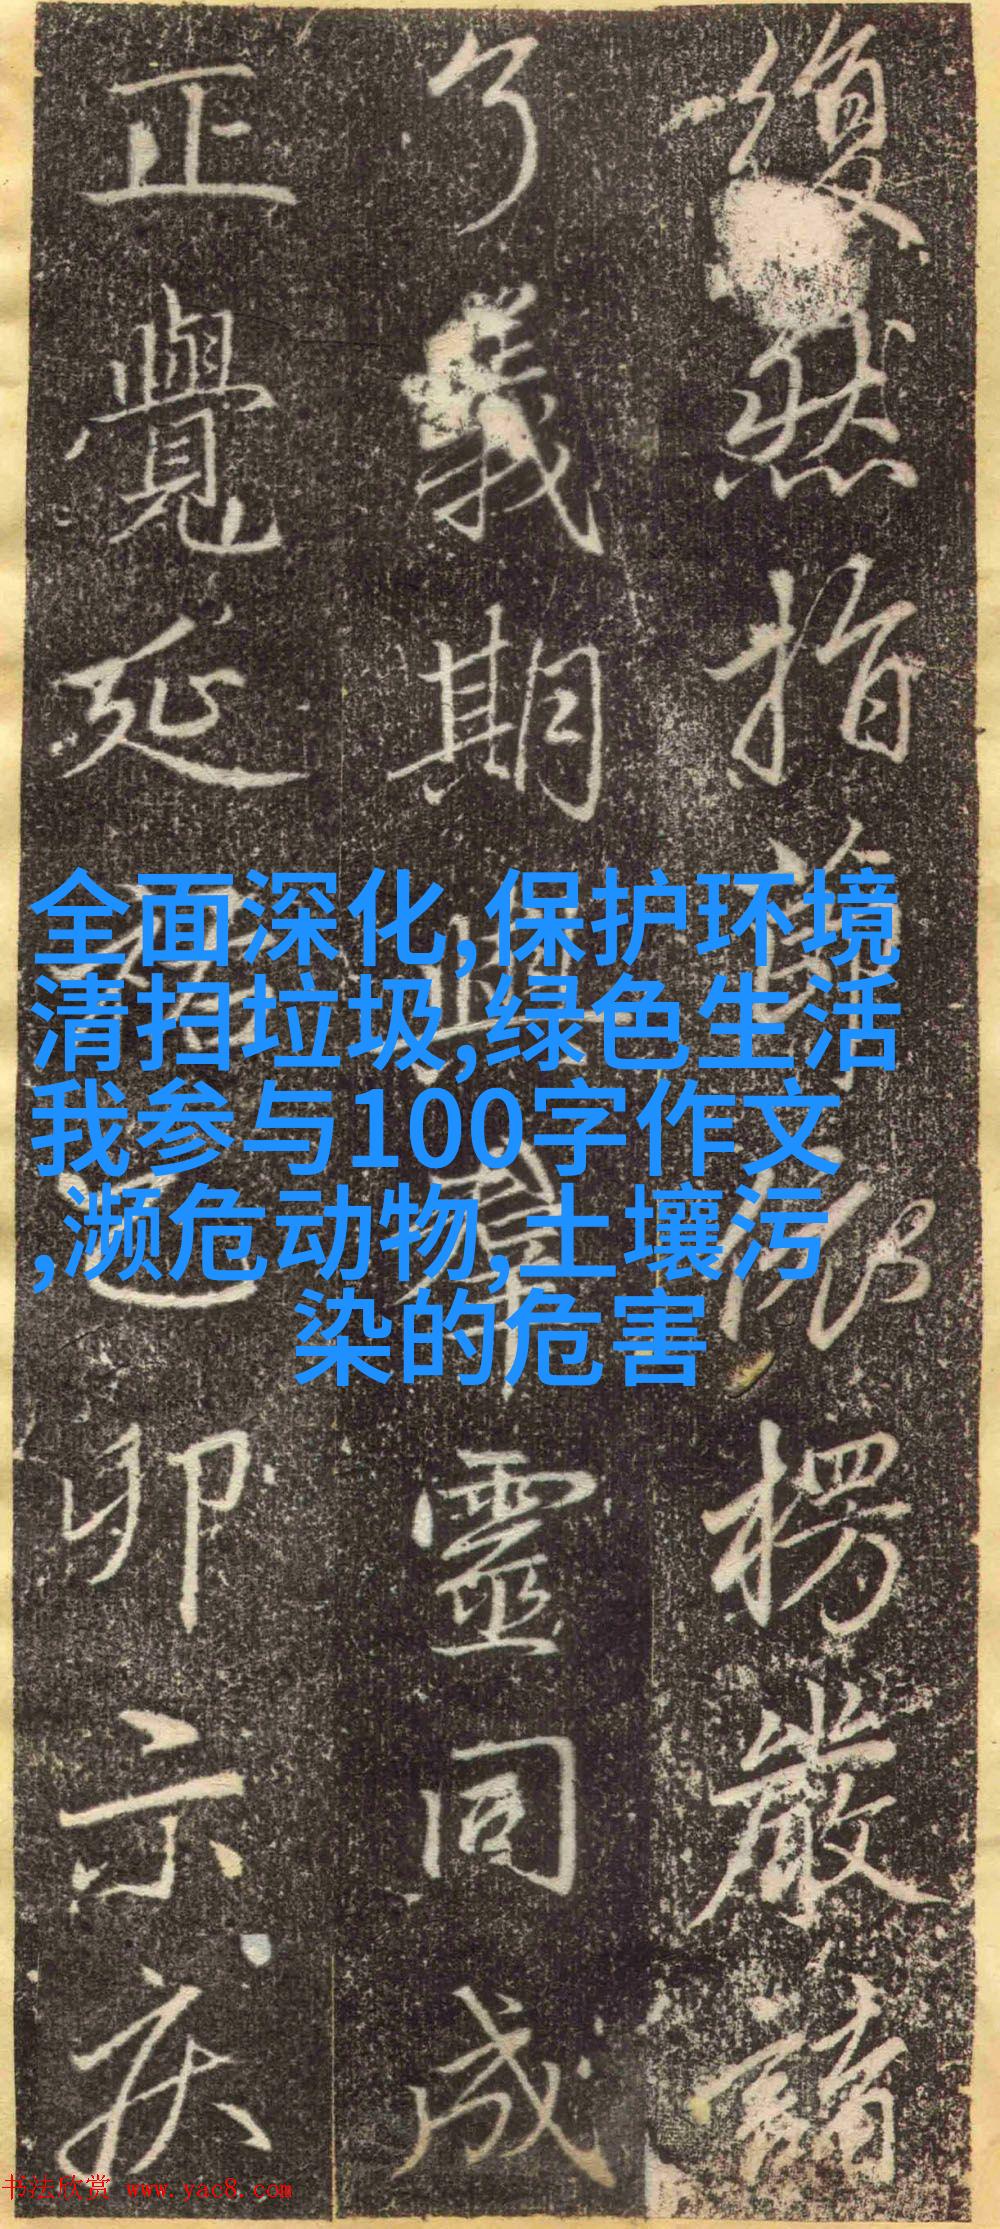 復然指楞嚴
了義期與群靈同成
正覺延卯示疾
全面深化,保护环境
清扫垃圾,绿色生活
我参与100字作文
,濒危动物,土壤污
染的危害
书法欣赏 www.yac8.com